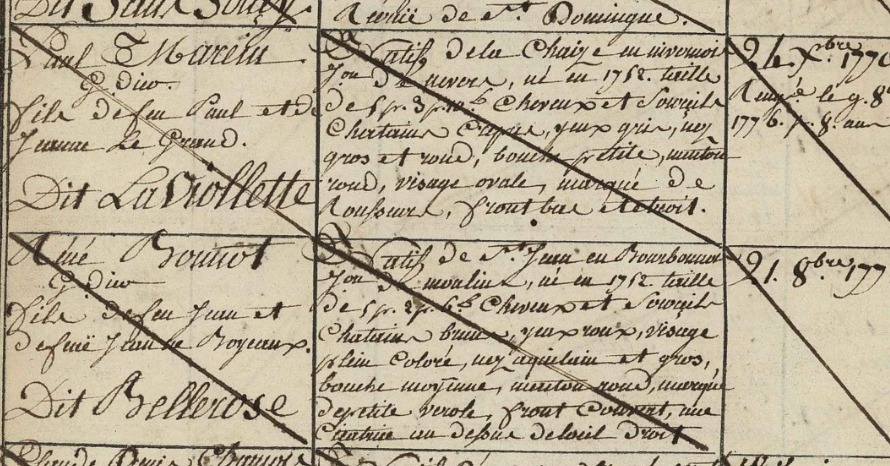 Dit Sans Soucy.
Réunie de St. Domingue.
Paul Marein
G. dier
fils de feu Paul et de
Jeanne Le Grand.
Dit LaViollette
Natif de la Chaize en nivernois
Jon de nevers, né en 1752. taille
de 5 p. 3 p. Cheveux et Sourcils
Chatains Crepés, yeux gris, nez
gros et rond, bouche petite, menton
rond, visage ovale, marqué de
Rousseurs, front bas et etroit.
24 Xbre 1770
Reng. le 9. 8
1776. p. 8. ans
Réné Bonnot
G. dier
fils de feu Jean et
de feüe Jeanne Boyeaux.
Dit Bellerose
Natif de St. Jean en Bourbonnois
Jon de moulin, né en 1752. taille
de 5 p. 2 p. 6 l. Cheveux et Sourcils
Chatains bruns, yeux roux, visage
plein coloré, nez aquilain et gros,
bouche moyenne, menton rond, marqué
de petite verole, front Couvert, une
Cicatrice au dessus de l'oeil droit
21. 8bre 177
Claude Denis
Natif